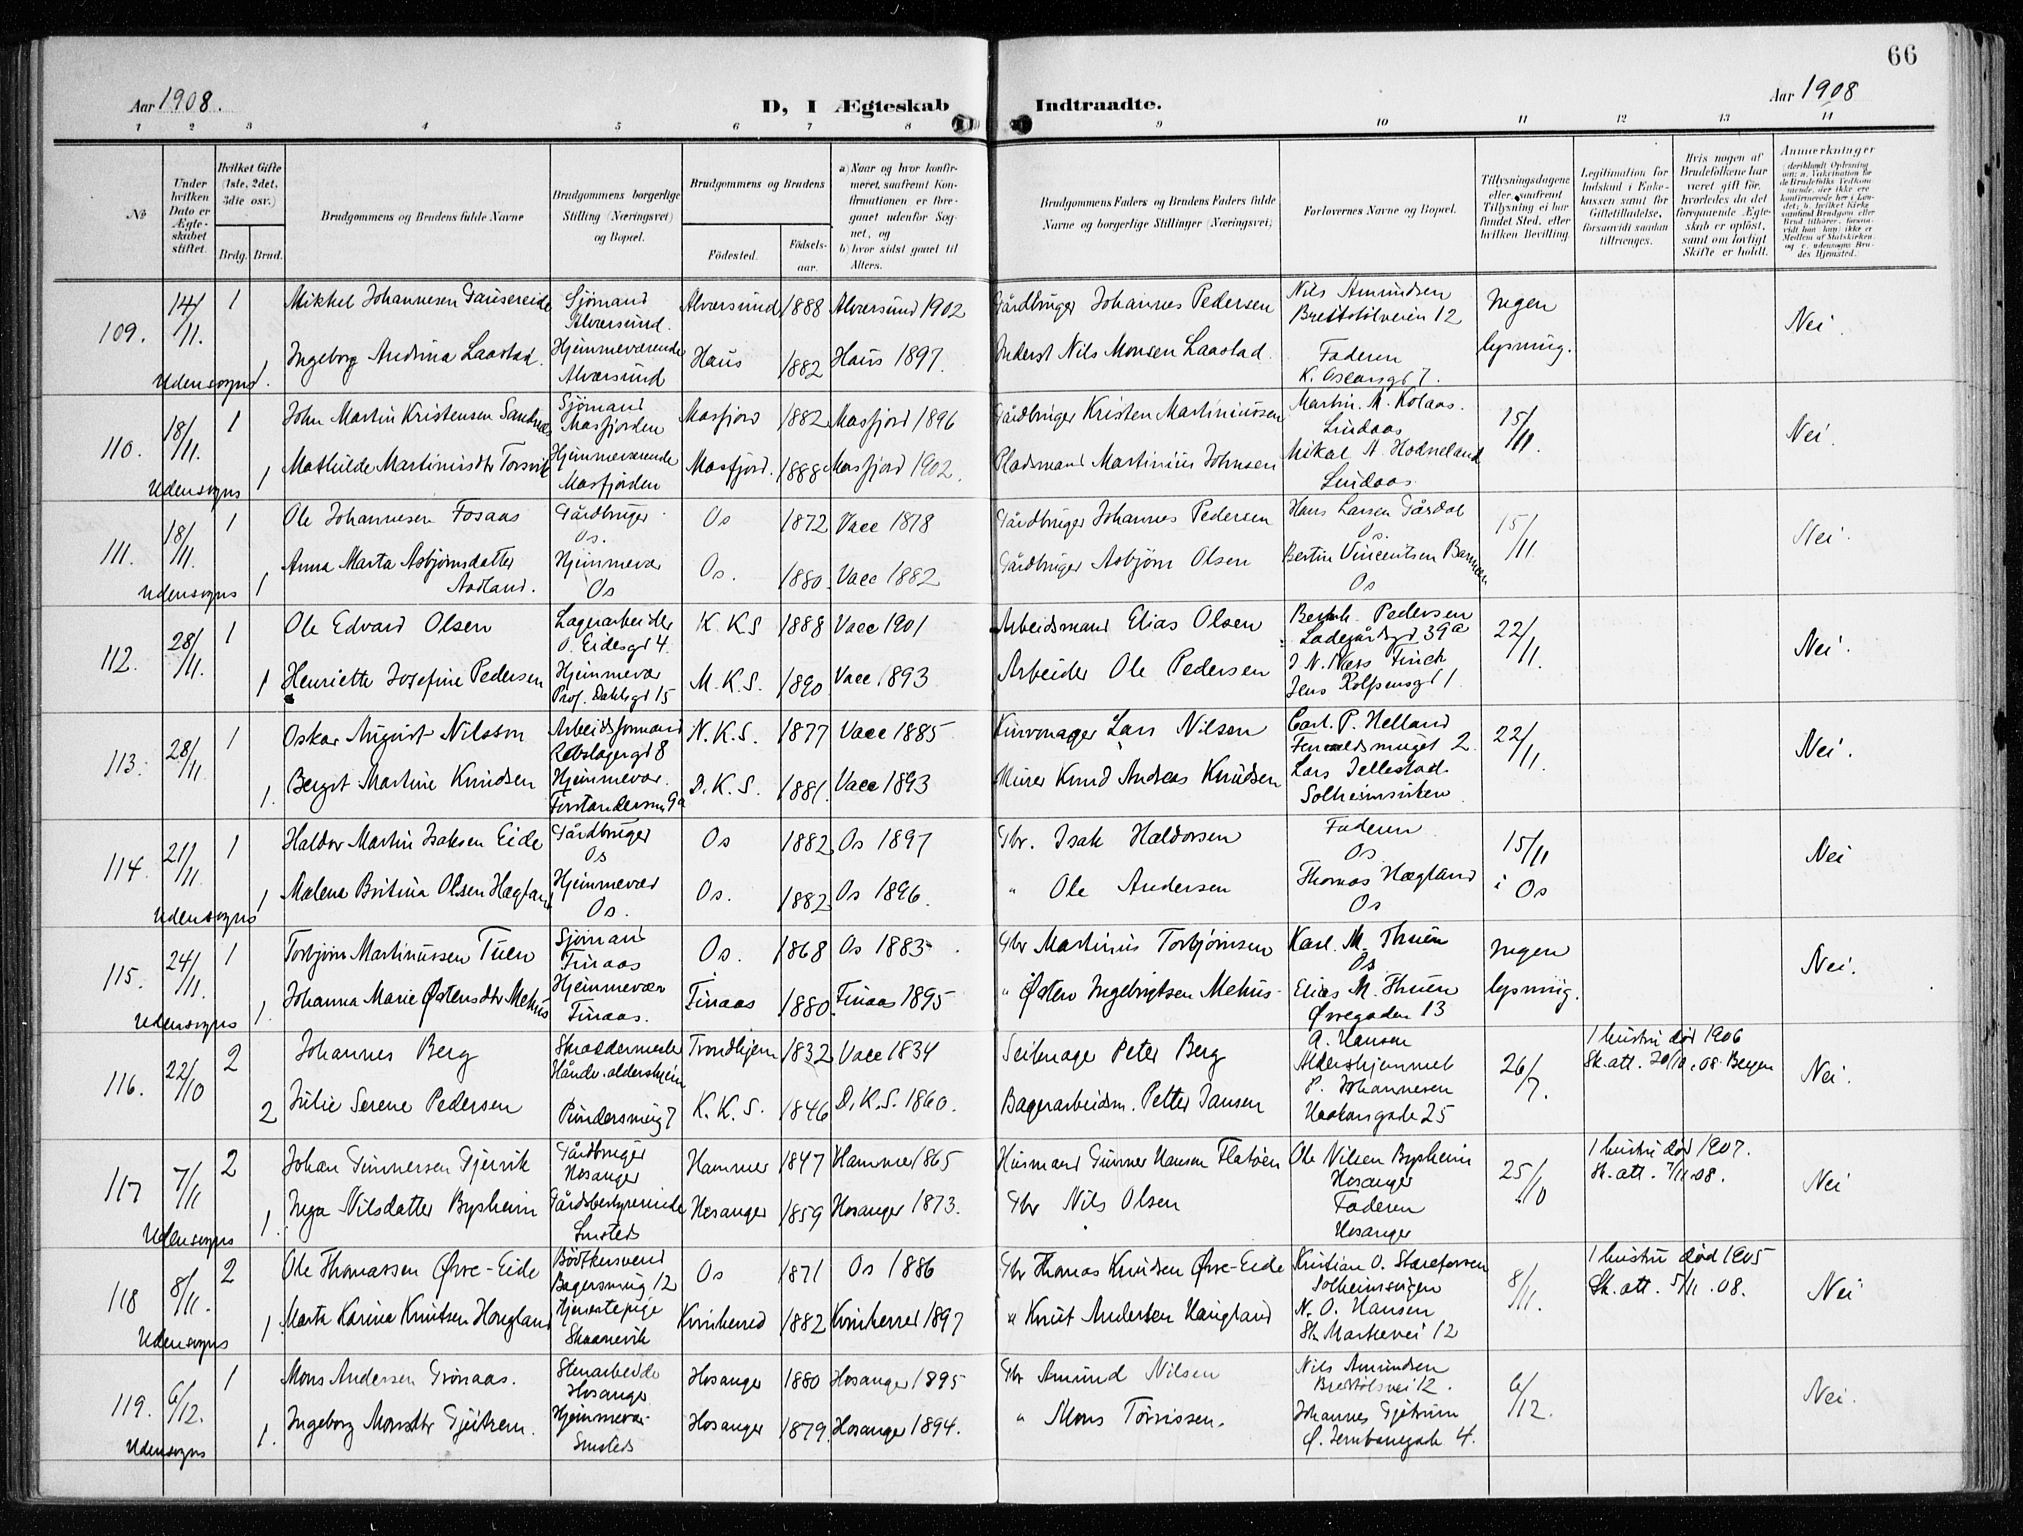 66
Aar 1908.
D, I Ægteskab Indtraadte.
Aar 1908
1 2 3 4 5 6 7 8 9 10 11 12 13 14
№
Under hvilken Dato er Ægteskabet stiftet.
Hvilket Gifte (1ste, 2det, 3die osv.)
Brdg. Brud.
Brudgommens og Brudens fulde Navne
Brudgommens borgerlige Stilling (Næringsvei) og Bopæl.
Brudgommens og Brudens
Fødested.
Fødselsaar.
a) Naar og hvor konfirmeret, saafremt Konfirmationen er foregaaet udenfor Sognet, og
b) hvor sidst gaaet til Alters.
Brudgommens Faders og Brudens Faders fulde Navne og borgerlige Stillinger (Næringsvei)
Forlovernes Navne og Bopæl.
Tillysningsdagene eller, saafremt Tillysning ei har fundet Sted, efter hvilken Bevilling.
Legitimation for Indskud i Enkekassen samt for Giftetilladelse, forsaavidt saadan tiltrænges.
Hvis nogen af Brudefolkene har været gift før, hvorledes da det foregaaende Ægteskab er opløst, samt om lovligt Skifte er holdt.
Anmerkninger
109. 14/11. 1 Mikkel Johannesen Gausereide Sjömand Alversund. Alversund 1888 Alversund 1902 Gårdbruger Johannes Pedersen Nils Amundsen Breistölveien 12 Ingen lysning. Nei.
Udensogns. 1 Ingeborg Andrina Laastad. Hjemmeværende Alversund Haus 1882 Haus 1897. Inderst Nils Monsen Laastad. Faderen K. Oscarsgd 7.
110. 18/11. 1 John Martin Kristensen Sandnes Sjömand Masfjorden Masfjord 1882 Masfjord 1896 Gårdbruger Kristen Martiniussen Martin. M. Kolaas. Lindaas 15/11. Nei.
Udensogns 1 Mathilde Martinusdtr Torsvik Hjemmeværende Masfjorden Masfjord. 1888 Masfjord 1902. Pladsmand Martinius Johnsen Mikal A. Hodneland Lindaas
111. 18/11. 1 Ole Johannesen Fosaas Gårdbruger Os. Os 1872 Vacc 1878 Gårdbruger Johannes Pedersen Hans Larsen Gårdal Os. 15/11 Nei.
Udensogns 1 Anna Marta Asbjørnsdatter Aadland. Hjemmevær Os Os. 1880. Vacc 1882 Gårdbruger Asbjørn Olsen Bertin Vincentsen Os
112. 28/11. 1 Ole Edvard Olsen Lagerarbeider O. Eidesgd 4. K. K. S 1888 Vacc 1901 Arbeidsmand Elias Olsen Bernh. Pedersen Ladegårdsgd 39a 22/11. Nei.
1 Henriette Josefine Pedersen Hjemmevær Prof. Dahlsgd 15 M. K. S. 1890 Vacc 1893 Arbeider Ole Pedersen J. N. Næss Finck Jens Rolfsensgd 1.
113. 28/11 1 Oskar August Nilsson Arbeidsformand Rebslagergd 8 N. K. S. 1877 Vacc 1885. Lars Nilsen Carl. P. Helland 2 22/11. Nei.
1. Bergit Martine Knudsen Hjemmevær. Forstandersm. 9a D. K. S. 1881. Vacc 1893 Murer Knud Andreas Knudsen Lars Jellestad Solheimsviken
114. 21/11. 1 Haldor Martin Isaksen Eide Gårdbruger Os Os 1882 Os 1897 Gbr. Isak Haldorsen Faderen Os 15/11 i Os Nei
Udensogns 1 Malena Britina Olsen Hægland Hjemmevær Os. Os. 1882. Os 1896. " Ole Andersen Thomas Hægland Os
115. 24/11. 1 Torbjørn Martinussen Tuen Sjömand Finaas Os. 1868 Os 1883. Gbr Martinus Torbjørnsen Karl. M. Thuen Os Ingen lysning. Nei.
Udensogns 1. Johanna Marie Østensdtr Mehus Hjemmevær Finaas. Finaas 1880. Finaas 1895 " Østen Ingebrigtsen Mehus Elias M. Thuen Øvregaden 13
116. 22/10 2 Johannes Berg Skræddermester Håndv. aldershjem Trondhjem 1832 Vacc 1834 Seilmager Peter Berg A. Hansen Aldershjemmet 26/7. 1 hustru død 1906 Sk. att. 20/10. 08 Bergen Nei.
2 Julie Serene Pedersen Pundersmug 7 K. K. S. 1846 D. K. S. 1860. Bagerarbeidsm. Petter Jansen P. Johannesen Haakonsgade 25
117 7/11 2 Johan Gunnersen Fjervik Gårdbruger Hosanger Hammer 1847 Hammer 1865 Husmand Gunner Hansen Flatöen Ole Nilsen Bysheim Hosanger 25/10 1 hustru død 1907. Sk. att. 7/11 08. Nei
Udensogns 1. Inga Nilsdatter Bysheim Gårdsbestyrerinde Hosanger 1859 Hosanger 1873. Gbr Nils Olsen Faderen Hosanger
118 8/11. 2 Ole Thomassen Øvre-Eide Bödkersvend Bagersmug 12 Os 1871 Os 1886 Gbr Thomas Knudsen Øvre-Eide Kristian O. Solheimsvigen 8/11. 1 hustru død 1905 Sk. att. 5/11. 08. Nei
Udensogns 1. Marta Karina Knutsen Haugland Tjenestepige Skaanevik Kvinherred 1882 Kvinherred 1897 " Knut Andersen Haugland N. O. Hansen St. Markevei 12
119. 6/12. 1 Mons Andersen Grönaas. Stenarbeider Hosanger Hosanger 1880 Hosanger 1895 Gbr Amund Nilsen Nils Amundsen Breistölsvei 12. 6/12. Nei.
Udensogns 1. Ingeborg Monsdtr Gjeitrem. Hjemmevær. Hosanger 1879. Hosanger 1894. " Mons Torrissen. Johannes Gjetrum Ø. Jernbanegade 4.